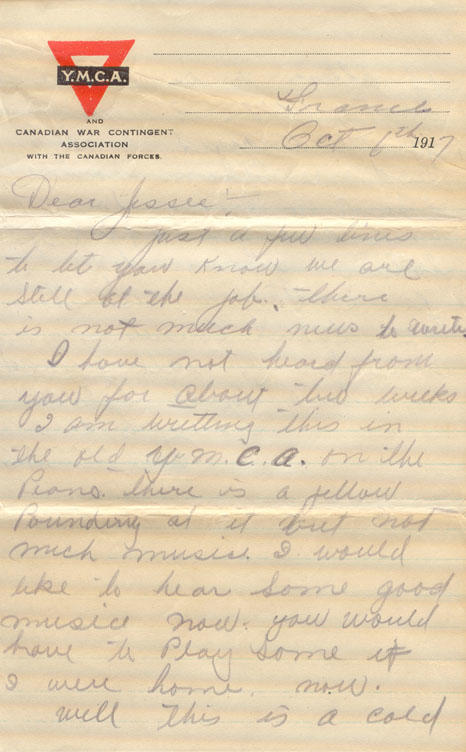 Y.M.C.A.
AND
CANADIAN WAR CONTINGENT
ASSOCIATION
WITH THE CANADIAN FORCES.
France
Oct 6th 1917
Dear Jessie!
Just a few lines
to let you know we are
still at the job. there
is not much news to write.
I have not heard from
you for about two weeks
I am writting this in
the old Y.M.C.A. on the
Piano. there is a fellow
Pounding at it but not
much music. I would
like to hear some good
music now. you would
have to Play some if
I were home. now.
well this is a cold